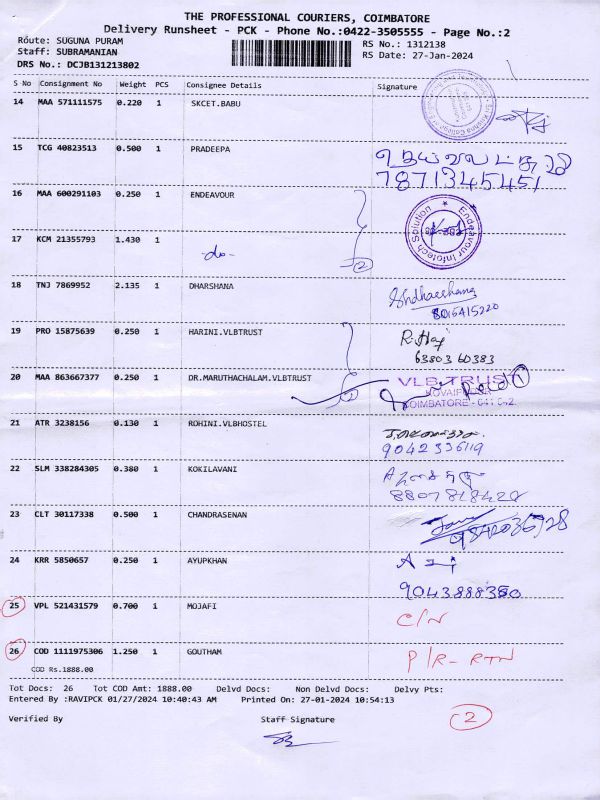 THE PROFESSIONAL COURIERS, COIMBATORE
Delivery Runsheet - PCK - Phone No.:0422-3505555 - Page No.:2
Route: SUGUNA PURAM RS No.: 1312138
Staff: SUBRAMANIAN RS Date: 27-Jan-2024
DRS No.: DCJB131213802
S No Consignment No Weight PCS Consignee Details Signature
14 MAA 571111575 0.220 1 SKCET.BABU
15 TCG 40823513 0.500 1 PRADEEPA
7871345451
16 MAA 600291103 0.250 1 ENDEAVOUR
Endeavour Infotech Solution
17 KCM 21355793 1.430 1 -do-
2
18 TNJ 7869952 2.135 1 DHARSHANA
8016415220
19 PRO 15875639 0.250 1 HARINI.VLBTRUST R.Haj
63803 60383
20 MAA 863667377 0.250 1 DR.MARUTHACHALAM.VLBTRUST VLB TRUST
2 COIMBATORE
21 ATR 3238156 0.130 1 ROHINI.VLBHOSTEL
9042336119
22 SLM 338284305 0.380 1 KOKILAVANI
8807818428
23 CLT 30117338 0.500 1 CHANDRASENAN
24 KRR 5850657 0.250 1 AYUPKHAN
25 VPL 521431579 0.700 1 MOJAFI C/N
26 COD 1111975306 1.250 1 GOUTHAM P/R- RTN
COD Rs.1888.00
Tot Docs: 26 Tot COD Amt: 1888.00 Delvd Docs: Non Delvd Docs: Delvy Pts:
Entered By :RAVIPCK 01/27/2024 10:40:43 AM Printed On: 27-01-2024 10:54:13
2
Verified By Staff Signature